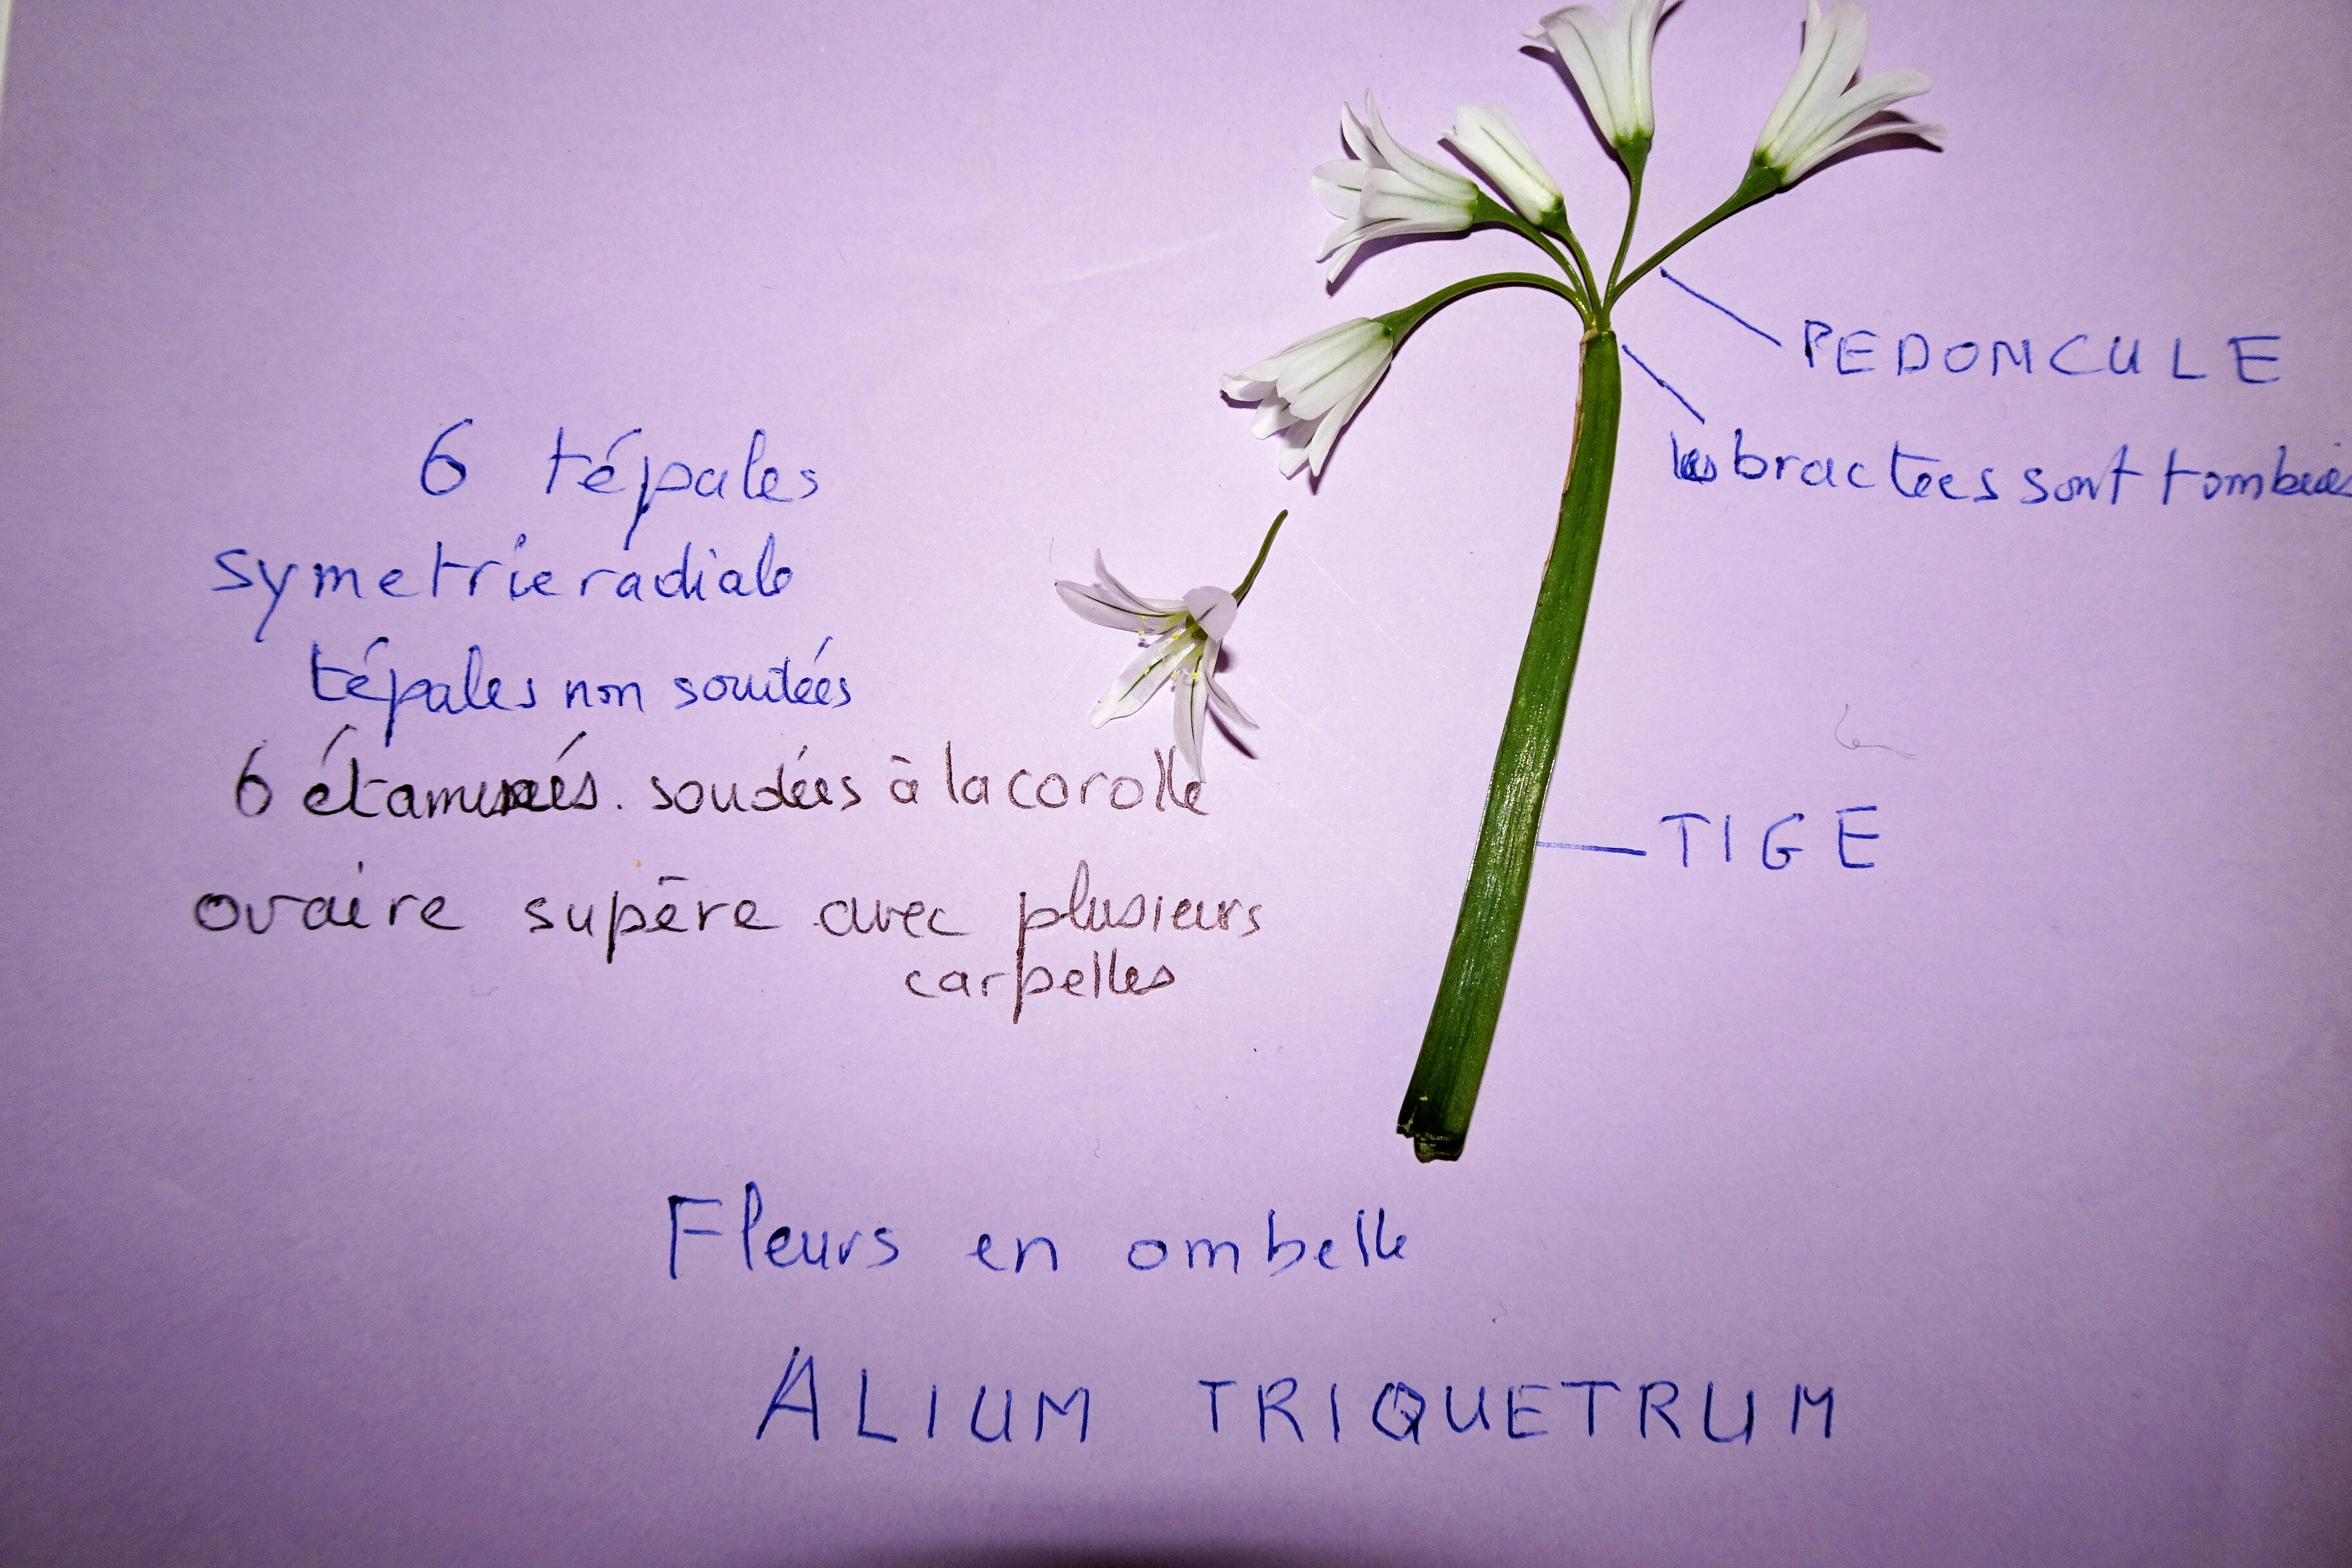 PEDONCULE
les bractées sont tombées
6 tépales
symetrie radiale
tépales non soudées
6 étaminés. soudées à la corolle
TIGE
ovaire supère avec plusieurs
carpelles
Fleurs en ombelle
ALIUM TRIQUETRUM